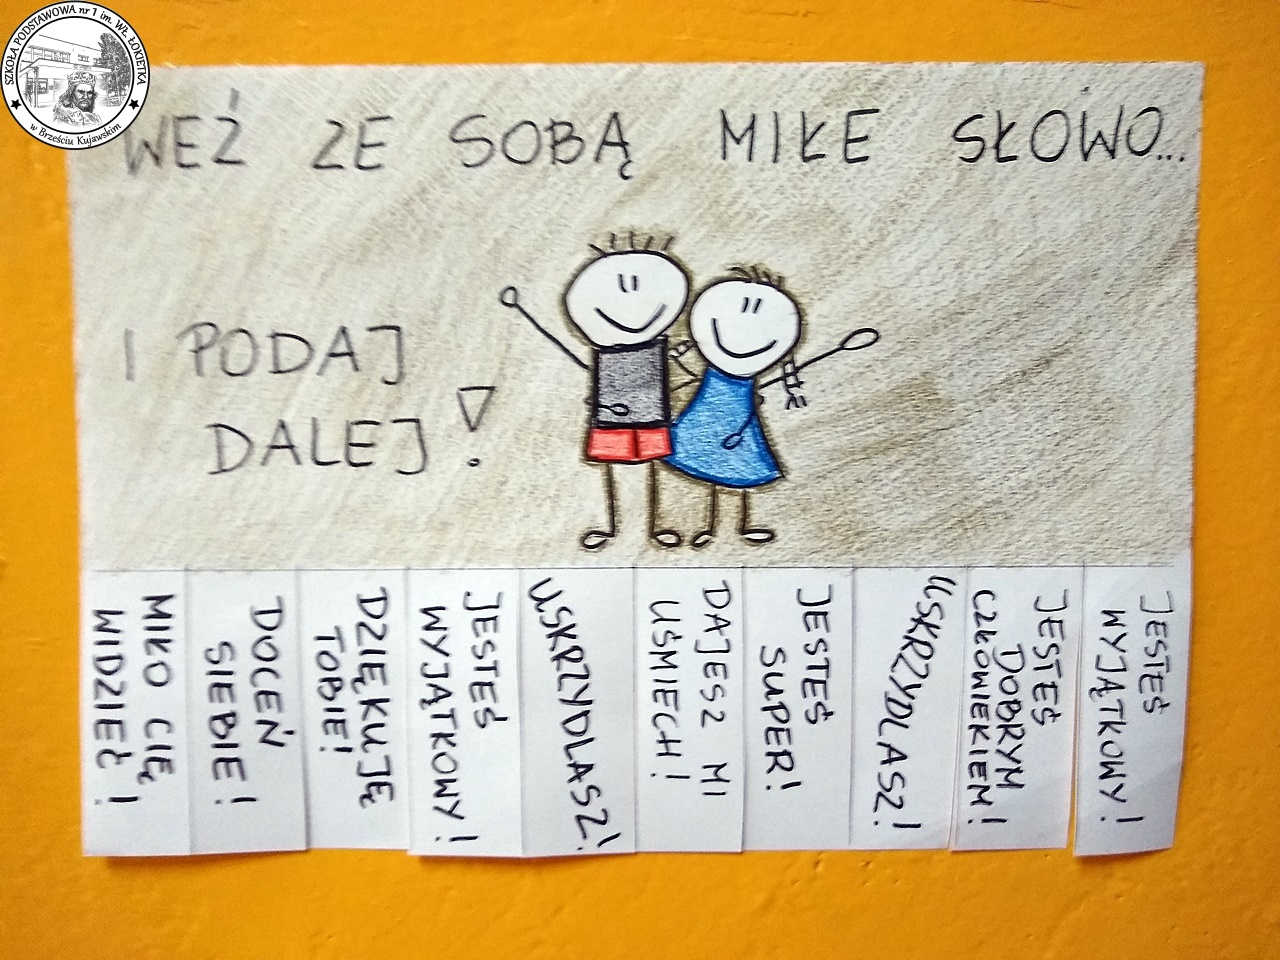 SZKOŁA PODSTAWOWA nr 1 im. WŁ. ŁOKIETKA
w Brześciu Kujawskim
WEŹ ZE SOBĄ MIŁE SŁOWO...
I PODAJ
DALEJ!
MIŁO CIĘ
WIDZIEĆ!
DOCEŃ
SIEBIE!
DZIĘKUJĘ
TOBIE!
JESTEŚ
WYJĄTKOWY!
USKRZYDLASZ!
DAJESZ MI
UŚMIECH!
JESTEŚ
SUPER!
USKRZYDLASZ!
JESTEŚ
DOBRYM
CZŁOWIEKIEM!
JESTEŚ
WYJĄTKOWY!